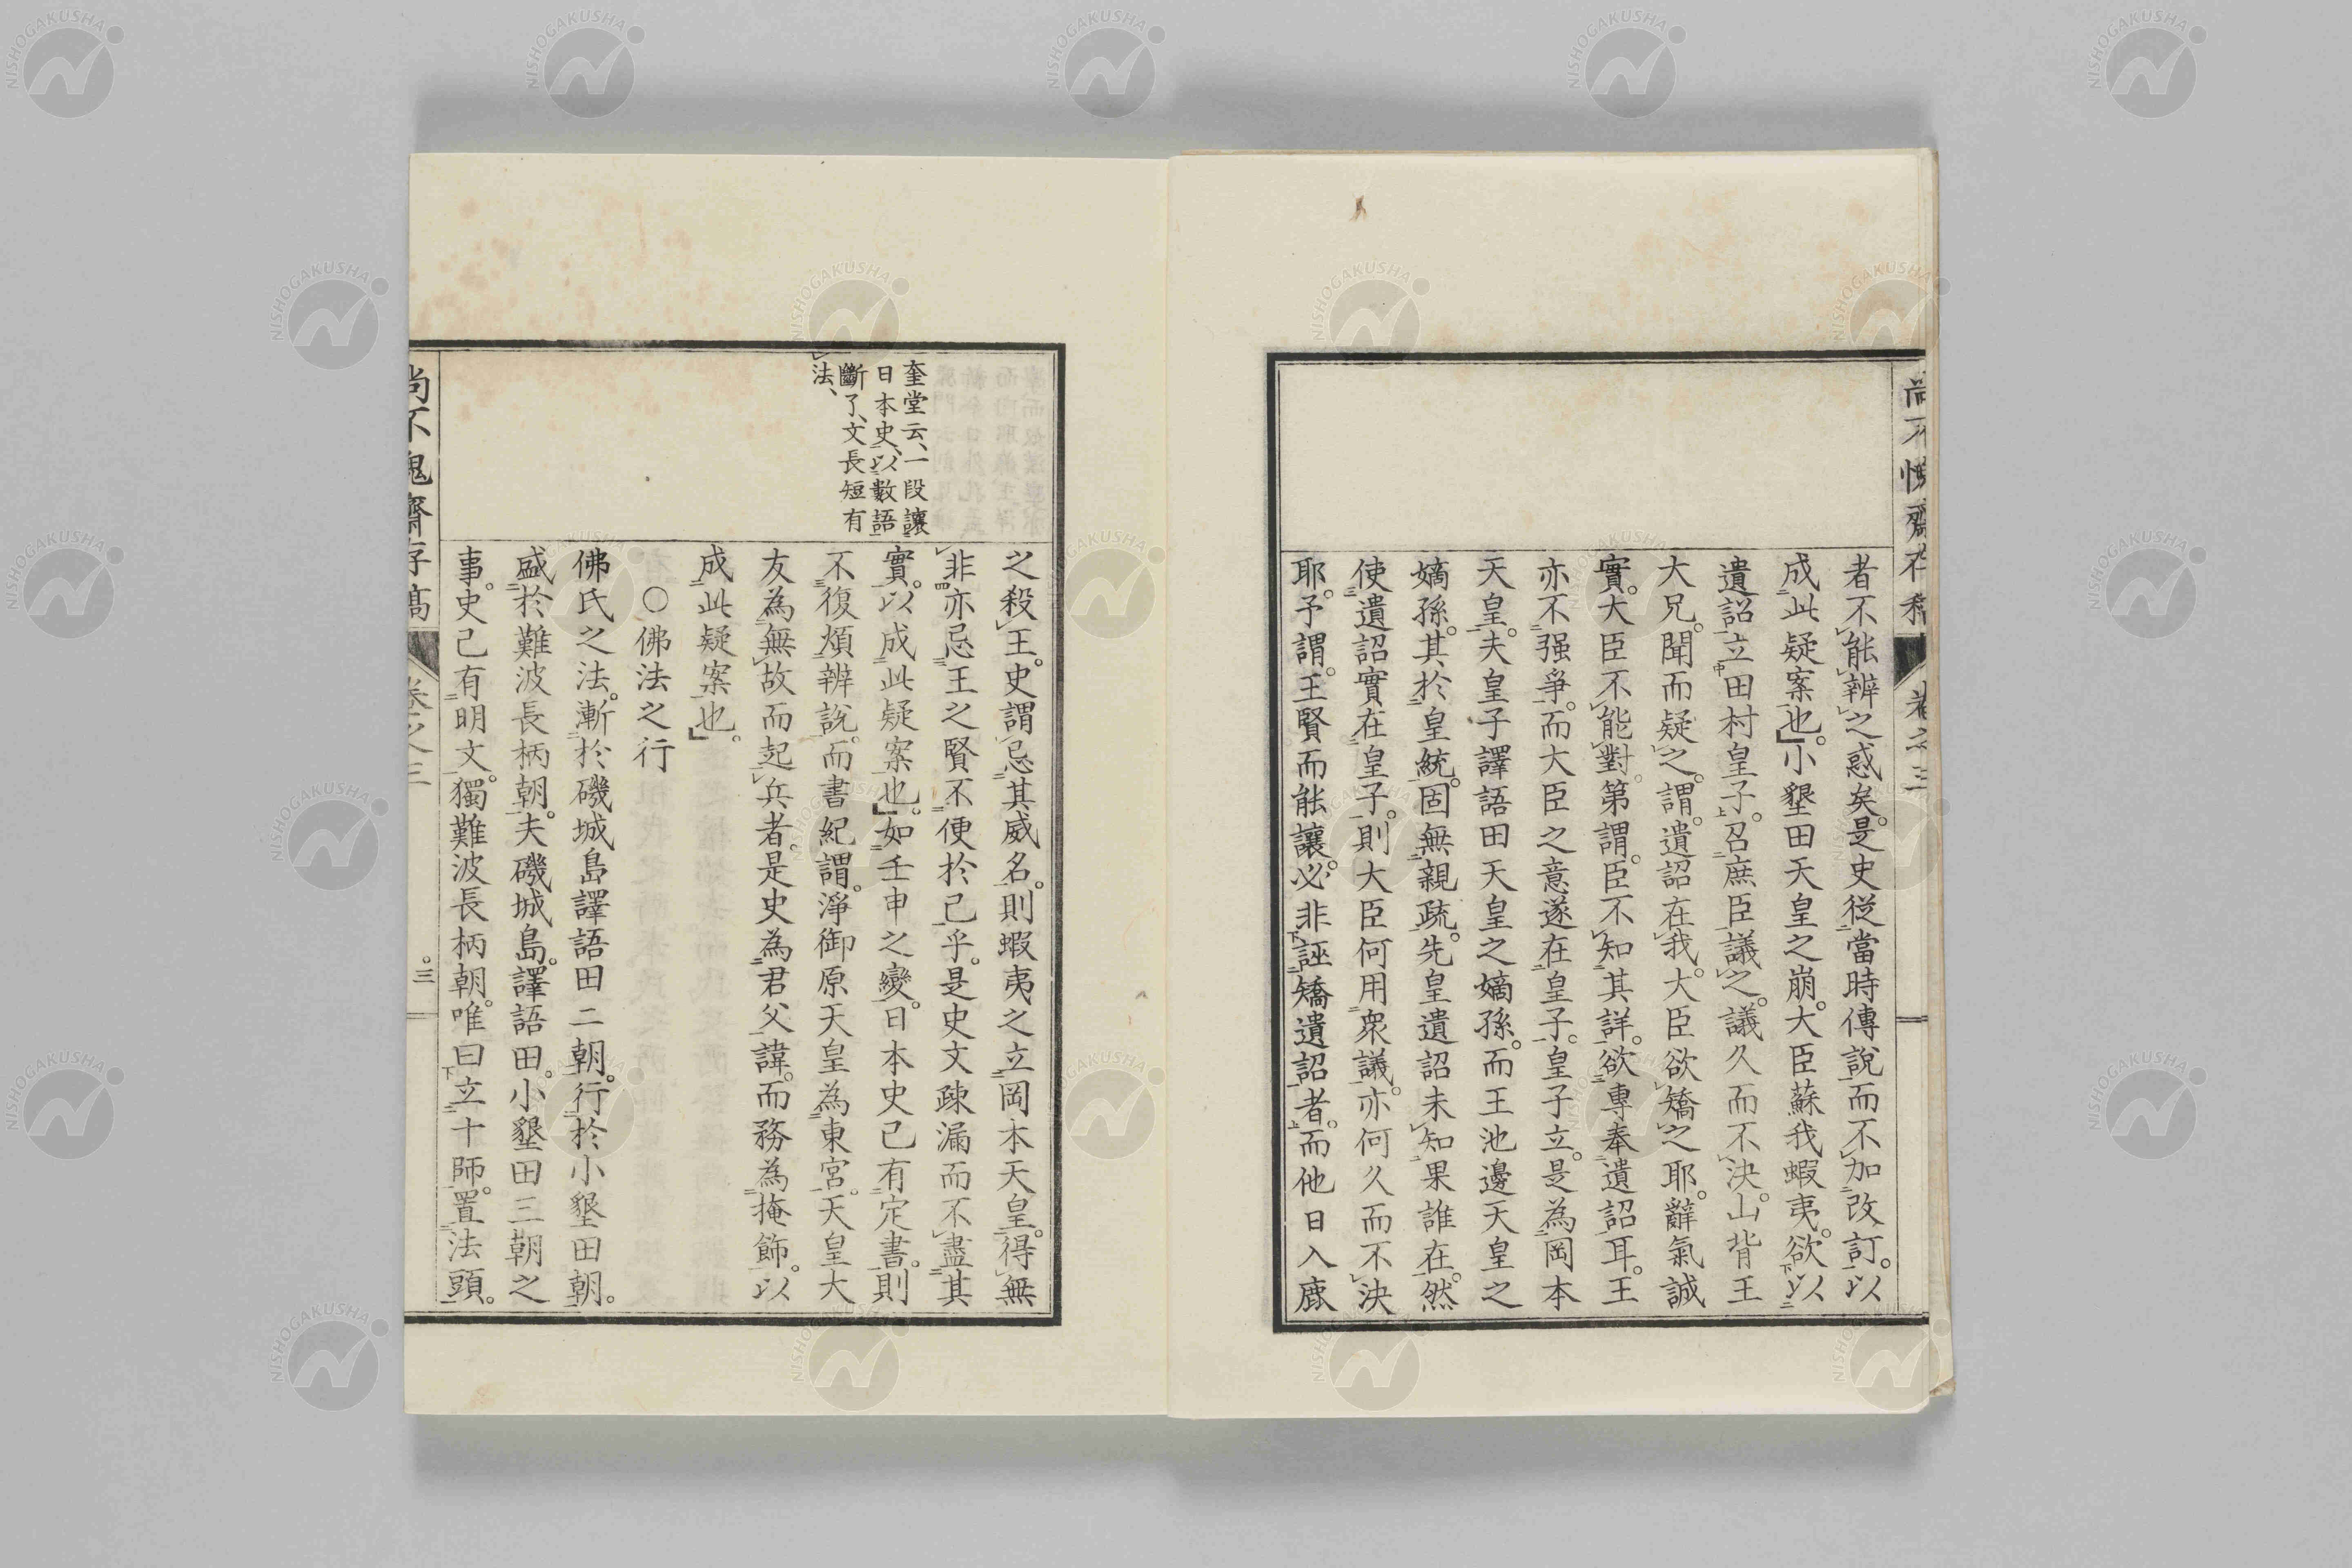 尚不愧齋存稿　卷之三
者不能辨之惑矣。是史從當時傳說而不加改訂。以
成此疑案也。」小墾田天皇之崩。大臣蘇我蝦夷。欲以
遺詔立田村皇子。召庶臣議之。議久而不決。山背王
大兄。聞而疑之。謂。遺詔在我。大臣欲矯之耶。辭氣誠
實。大臣不能對。第謂。臣不知其詳。欲專奉遺詔耳。王
亦不强爭。而大臣之意遂在皇子。皇子立。是為岡本
天皇。夫皇子譯語田天皇之嫡孫。而王池邊天皇之
嫡孫。其於皇統。固無親疏。先皇遺詔未知果誰在。然
使遺詔實在皇子。則大臣何用衆議。亦何久而不決
耶。予謂。王賢而能讓。必非誣矯遺詔者。而他日入鹿
之殺王。史謂忌其威名。則蝦夷之立岡本天皇。得無
非亦忌王之賢不便於己乎。是史文疎漏而不盡其
實。以成此疑案也。」如壬申之變。日本史已有定書。則
不復煩辨說。而書紀謂。淨御原天皇為東宮。天皇大
友為無故而起兵者。是史為君父諱。而務為掩飾。以
成此疑案也。」
○佛法之行
佛氏之法。漸於磯城島譯語田二朝。行於小墾田朝。
盛於難波長柄朝。夫磯城島。譯語田。小墾田三朝之
事。史已有明文。獨難波長柄朝。唯曰立十師。置法頭。
奎堂云、一段讓
日本史、以數語
斷了、文長短有
法、
尚不愧齋存稿　卷之三　三